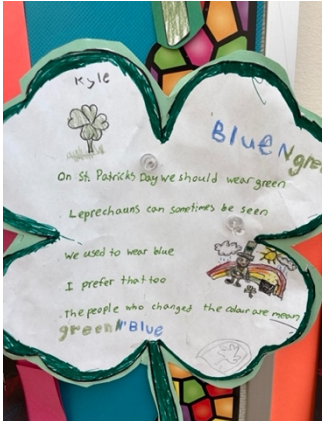 Kyle
Blue N gree
On St. Patricks Day we should wear green
Leprechauns can sometimes be seen
We used to wear blue
I prefer that too
The people who changed the colour are mean
green N' Blue